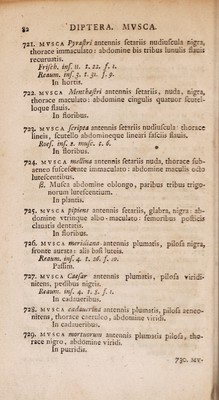 82 DIPTERA. MUSCA.
721. MUSCA Pyrastri antennis setariis nudiuscula nigra,
thorace immaculato: abdomine bis tribus lunulis flavis
recurvatis.
Frisch. inf. 11. t. 22. f. 1.
Reaum. inf. 3. t. 31. f. 9.
In hortis.
722. MUSCA Menthastri antennis setariis, nuda, nigra,
thorace maculato: abdomine cingulis quatuor scutelloque
flavis.
In floribus.
723. MUSCA scripta antennis setariis nudiuscula: thorace
lineis, scutello abdomineque lineari fasciis flavis.
Roes. inf. 2. musc. t. 6.
In floribus.
724. MUSCA mellina antennis setariis nuda, thorace subaeneo
immaculato: abdomine maculis octo
lutescentibus.
β. Musca abdomine oblongo, paribus tribus trigonorum
lutescentium.
In plantis.
725. MUSCA pipiens antennis setariis, glabra, nigra: abdomine
utrinque albo-maculato: femoribus posticis
clavatis dentatis.
In floribus.
726. MUSCA meridiana antennis plumatis, pilosa nigra,
fronte aurata: alis basi luteis.
Reaum. inf. 4. t. 26. f. 10.
Passim.
727. MUSCA Caesar antennis plumatis, pilosa viridinitens,
pedibus nigris.
Reaum. inf. 4. t. 8. f. 1.
In cadaveribus.
728. MUSCA cadaverina antennis plumatis, pilosa aeneonitens,
thorace caeruleo, abdomine viridi.
In cadaveribus.
729. MUSCA mortuorum antennis plumatis pilosa, thorace
nigro, abdomine viridi.
In putridis.
730. MU-